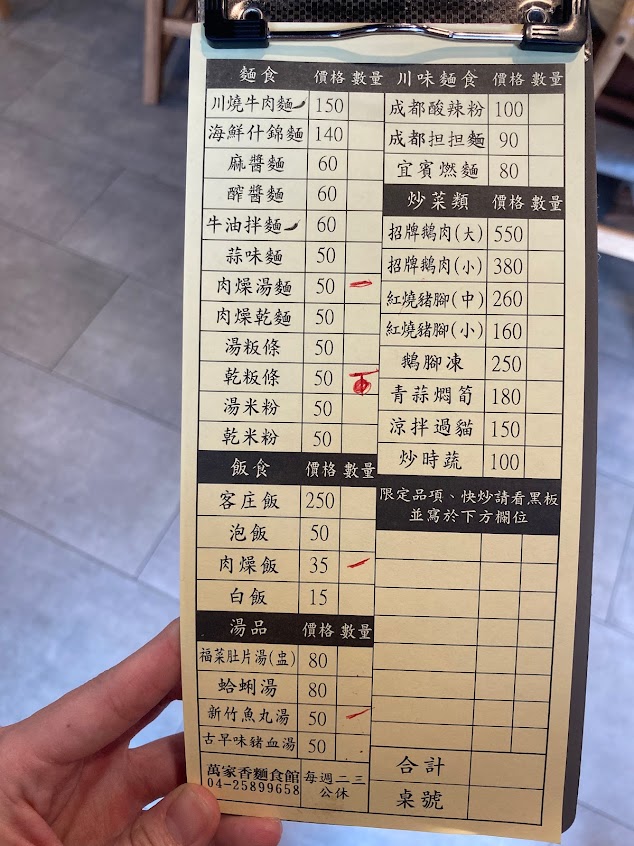 麵食 價格 數量
川燒牛肉麵 150
海鮮什錦麵 140
麻醬麵 60
醡醬麵 60
牛油拌麵 60
蒜味麵 50
肉燥湯麵 50
肉燥乾麵 50
湯粄條 50
乾粄條 50
湯米粉 50
乾米粉 50
飯食 價格 數量
客庄飯 250
泡飯 50
肉燥飯 35
白飯 15
湯品 價格 數量
福菜肚片湯(盅) 80
蛤蜊湯 80
新竹魚丸湯 50
古早味豬血湯 50
萬家香麵食館
04-25899658
每週二三
公休
川味麵食 價格 數量
成都酸辣粉 100
成都担担麵 90
宜賓燃麵 80
炒菜類 價格 數量
招牌鵝肉(大) 550
招牌鵝肉(小) 380
紅燒豬腳(中) 260
紅燒豬腳(小) 160
鵝腳凍 250
青蒜燜筍 180
涼拌過貓 150
炒時蔬 100
限定品項、快炒請看黑板
並寫於下方欄位
合計
桌號